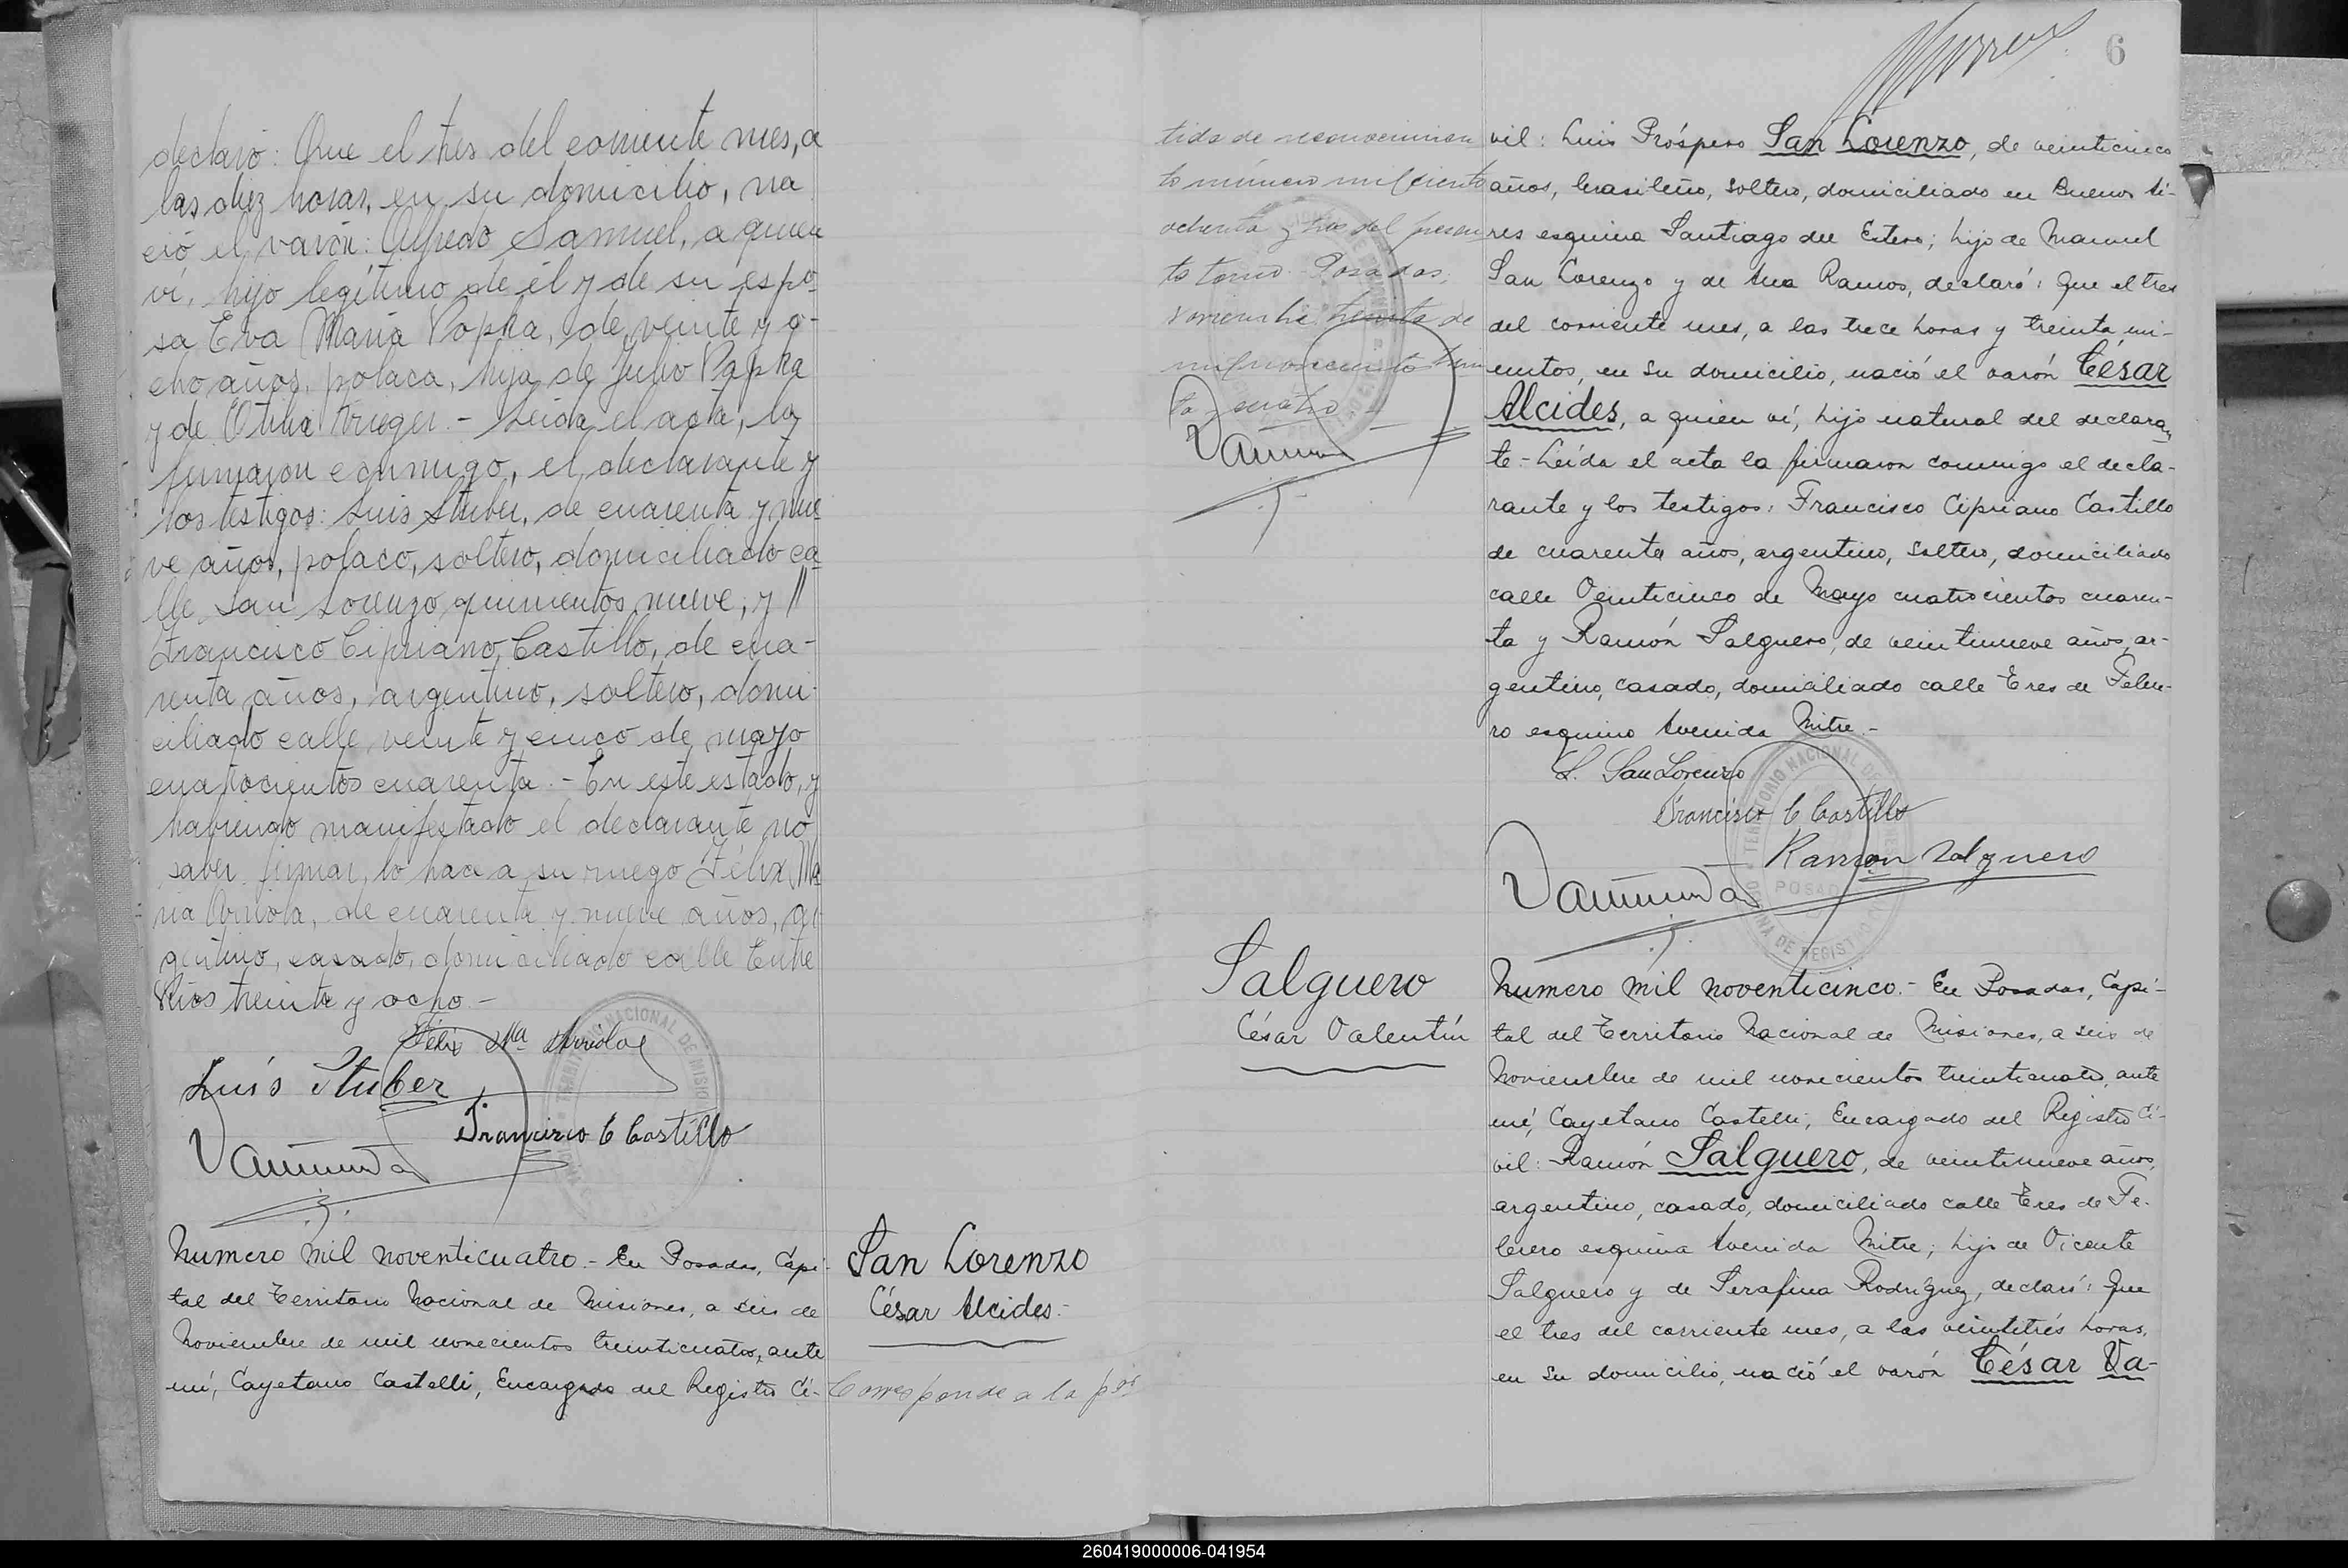 declaró: Que el tres del corriente mes, a
las diez horas, en su domicilio, na
ció el varón: Alfredo Samuel, a quien
ví, hijo legítimo de él y de su espo-
sa Eva María Popka, de veinte y o-
cho años, polaca, hija de Julio Papka
y de Otilia Kruger.- Leída el acta, la
firmaron conmigo, el declarante y
los testigos: Luis Stuber, de cuarenta y nue
ve años, polaco, soltero, domiciliado ca
lle San Lorenzo quinientos nueve; y //
Francisco Cipriano Castillo, de cua-
renta años, argentino, soltero, domi-
ciliado calle veinte y cinco de mayo
cuatrocientos cuarenta.- En este estado, y
habiendo manifestado el declarante no
saber firmar, lo hace a su ruego Félix Ma
ría Arriola, de cuarenta y nueve años, ar
gentino, casado, domiciliado calle Entre
Ríos treinta y ocho.-
Félix Ma Arriola
Luís Stuber
Francisco C Castillo
Numero mil noventicuatro.- En Posadas, Capi-
tal del Territorio Nacional de Misiones, a seis de
Noviembre de mil novecientos treinticuatro, ante
mí, Cayetano Castelli, Encargado del Registro Ci-
San Lorenzo
César Alcides.-
Corresponde a la par
6
tida de reconocimien
to número mil ciento
ochenta y tres del presen
te tomo. Posadas,
noviembre treinta de
mil novecientos trein
ta y cuatro.-
vil: Luis Próspero San Lorenzo, de veinticinco
años, brasileño, soltero, domiciliado en Buenos Ai-
res esquina Santiago del Estero; hijo de Manuel
San Lorenzo y de Ana Ramos, declaró: Que el tres
del corriente mes, a las trece horas y treinta mi-
nutos, en su domicilio, nació el varón César
Alcides, a quien ví, hijo natural del declaran
te.- Leída el acta la firmaron conmigo el decla-
rante y los testigos: Francisco Cipriano Castillo
de cuarenta años, argentino, soltero, domiciliado
calle Veinticinco de Mayo cuatrocientos cuaren-
ta y Ramón Salguero, de veintinueve años, ar-
gentino, casado, domiciliado calle Tres de Febre-
ro esquina Avenida Mitre.-
L. San Lorenzo
Francisco C Castillo
Ramon Salguero
Salguero
César Valentín
Numero mil noventicinco.- En Posadas, Capi-
tal del Territorio Nacional de Misiones, a seis de
Noviembre de mil novecientos treinticuatro, ante
mí, Cayetano Castelli, Encargado del Registro Ci-
vil: Ramón Salguero, de veintinueve años,
argentino, casado, domiciliado calle Tres de Fe-
brero esquina Avenida Mitre; hijo de Vicente
Salguero y de Serafina Rodríguez, declaró: Que
el tres del corriente mes, a las veintitrés horas,
en su domicilio, nació el varón César Va-
260419000006-041954